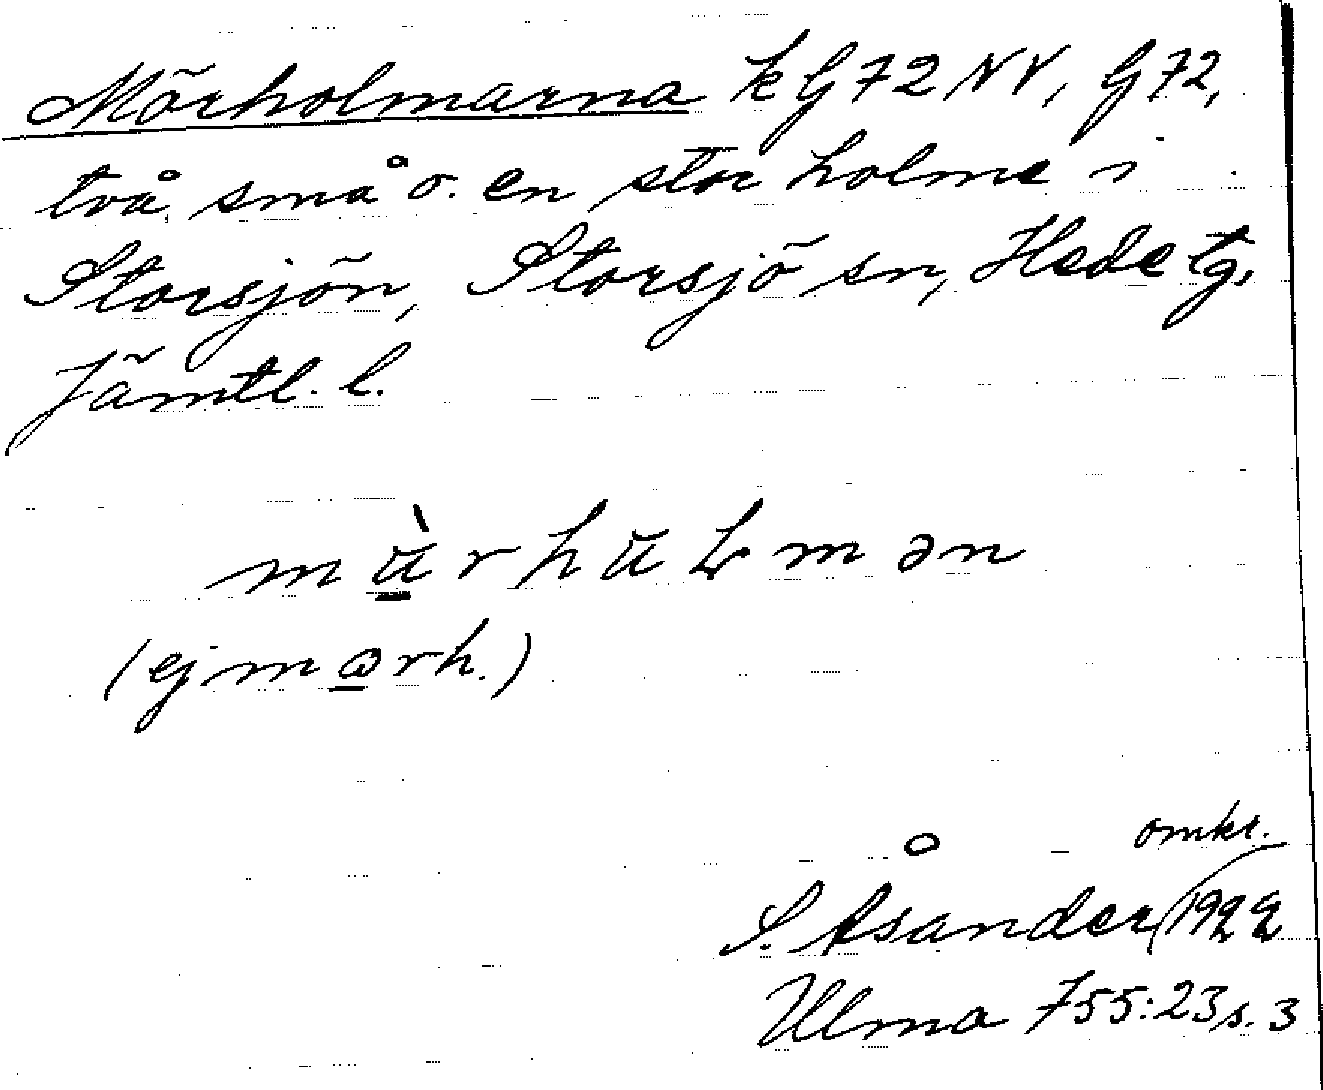 Mörholmarna k G72 NV, G72,
två små o. en stor holme i
Storsjön, Storsjö sn, Hede tg,
Jämtl. l.
(ej m rh.)
omkr.
S. Åsander 1922
Ulma 755:23 s. 3